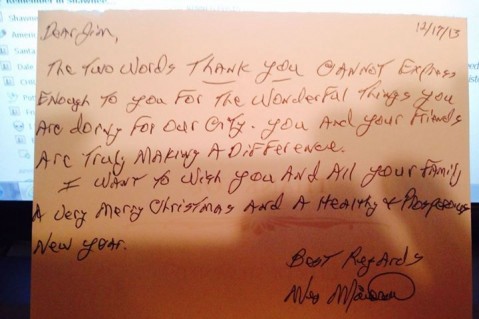 12/17/13
Dear Jim,
The Two Words Thank you Cannot Express
Enough To you For The Wonderful Things you
Are doing For Our City. you And your Friends
Are Truly Making A Difference.
I Want To Wish you And All your Family
A Very Merry Christmas And A Healthy & Prosperous
New year.
Best Regards